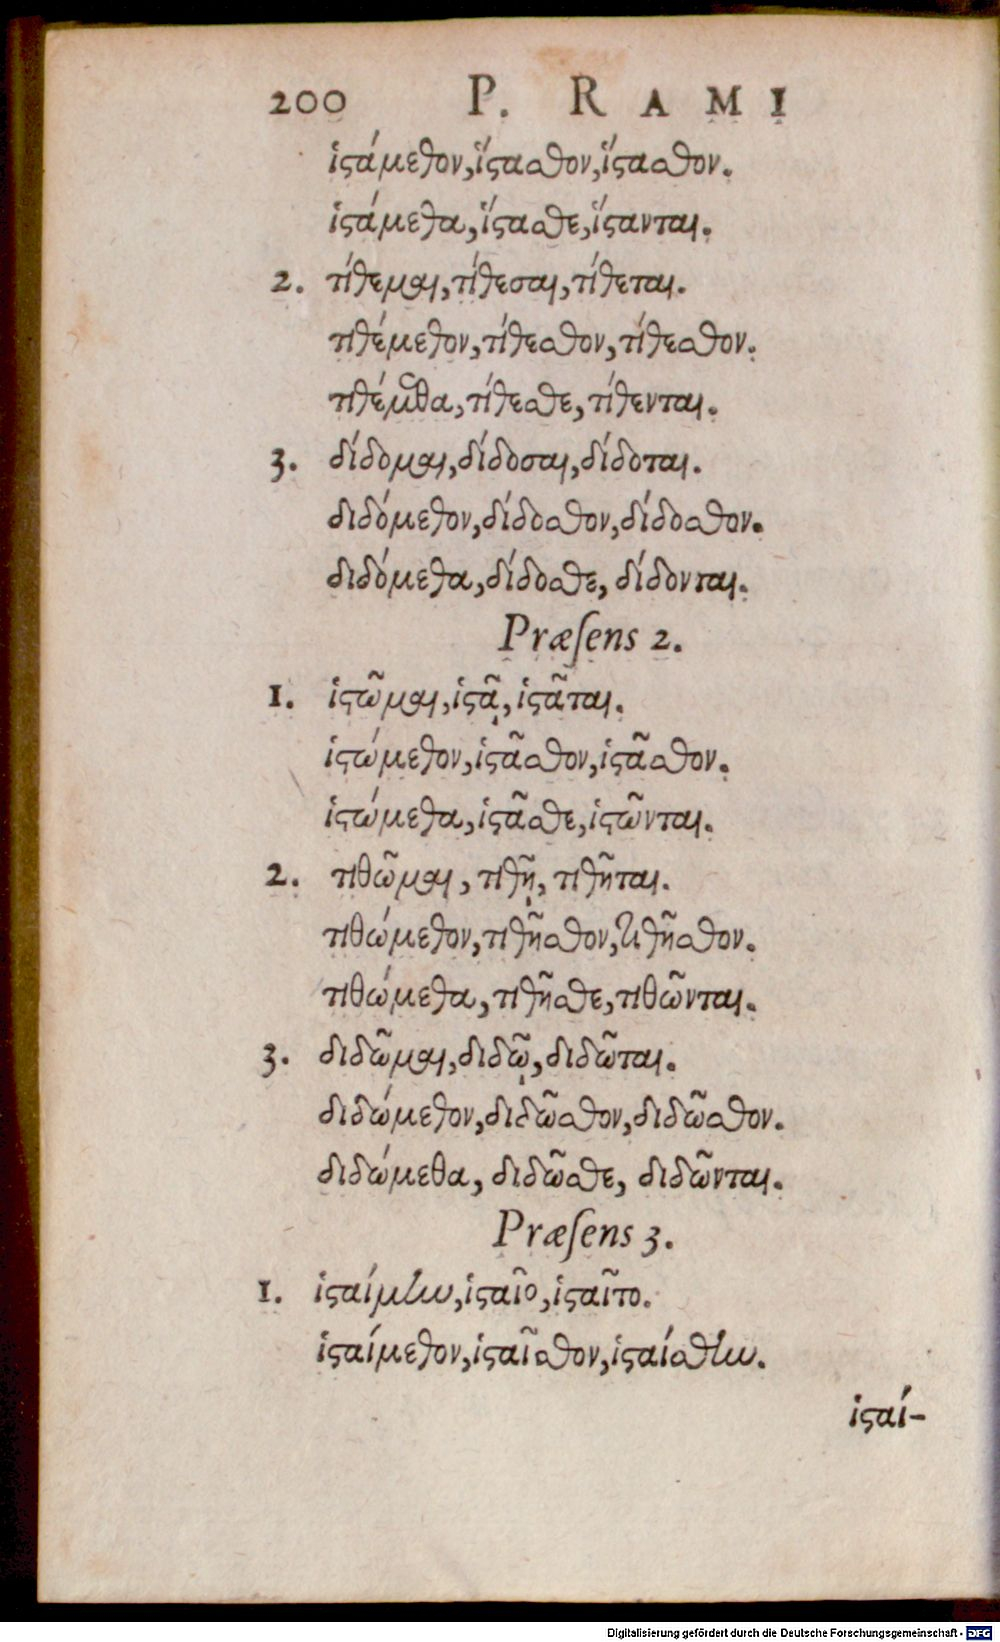 200 P. RAMI
ἱστάμεθον, ἵστασθον, ἵστασθον.
ἱστάμεθα, ἵστασθε, ἵστανται.
2. τίθεμαι, τίθεσαι, τίθεται.
τιθέμεθον, τίθεσθον, τίθεσθον.
τιθέμεθα, τίθεσθε, τίθενται.
3. δίδομαι, δίδοσαι, δίδοται.
διδόμεθον, δίδοσθον, δίδοσθον.
διδόμεθα, δίδοσθε, δίδονται.
Præsens 2.
1. ἱστῶμαι, ἱστᾷ, ἱστᾶται.
ἱστώμεθον, ἱστᾶσθον, ἱστᾶσθον.
ἱστώμεθα, ἱστᾶσθε, ἱστῶνται.
2. τιθῶμαι, τιθῇ, τιθῆται.
τιθώμεθον, τιθῆσθον, τιθῆσθον.
τιθώμεθα, τιθῆσθε, τιθῶνται.
3. διδῶμαι, διδῷ, διδῶται.
διδώμεθον, διδῶσθον, διδῶσθον.
διδώμεθα, διδῶσθε, διδῶνται.
Præsens 3.
1. ἱσταίμην, ἱσταῖο, ἱσταῖτο.
ἱσταίμεθον, ἱσταῖσθον, ἱσταίσθην.
ἱσταί-
Digitalisierung gefördert durch die Deutsche Forschungsgemeinschaft - DFG